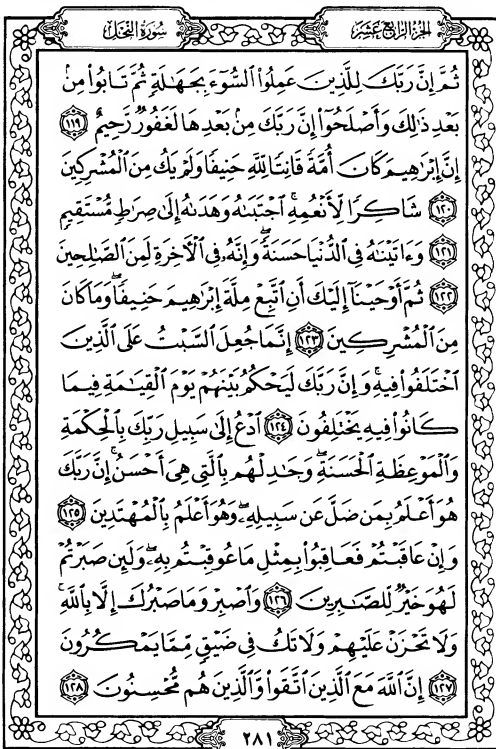 سُورَةُ النَّحْلِ
الجُزْءُ الرَّابِعَ عَشَرَ
ثُمَّ إِنَّ رَبَّكَ لِلَّذِينَ عَمِلُواْ ٱلسُّوٓءَ بِجَهَٰلَةٍ ثُمَّ تَابُواْ مِنۢ
بَعْدِ ذَٰلِكَ وَأَصْلَحُوٓاْ إِنَّ رَبَّكَ مِنۢ بَعْدِهَا لَغَفُورٌ رَّحِيمٌ ١١٩
إِنَّ إِبْرَٰهِيمَ كَانَ أُمَّةً قَانِتًا لِّلَّهِ حَنِيفًا وَلَمْ يَكُ مِنَ ٱلْمُشْرِكِينَ
١٢٠ شَاكِرًا لِّأَنْعُمِهِ ۚ ٱجْتَبَىٰهُ وَهَدَىٰهُ إِلَىٰ صِرَٰطٍ مُّسْتَقِيمٍ
١٢١ وَءَاتَيْنَٰهُ فِي ٱلدُّنْيَا حَسَنَةً ۖ وَإِنَّهُۥ فِي ٱلْأَخِرَةِ لَمِنَ ٱلصَّٰلِحِينَ
١٢٢ ثُمَّ أَوْحَيْنَآ إِلَيْكَ أَنِ ٱتَّبِعْ مِلَّةَ إِبْرَٰهِيمَ حَنِيفًا ۖ وَمَا كَانَ
مِنَ ٱلْمُشْرِكِينَ ١٢٣ إِنَّمَا جُعِلَ ٱلسَّبْتُ عَلَى ٱلَّذِينَ
ٱخْتَلَفُواْ فِيهِ ۚ وَإِنَّ رَبَّكَ لَيَحْكُمُ بَيْنَهُمْ يَوْمَ ٱلْقِيَٰمَةِ فِيمَا
كَانُواْ فِيهِ يَخْتَلِفُونَ ١٢٤ ٱدْعُ إِلَىٰ سَبِيلِ رَبِّكَ بِٱلْحِكْمَةِ
وَٱلْمَوْعِظَةِ ٱلْحَسَنَةِ ۖ وَجَٰدِلْهُم بِٱلَّتِي هِيَ أَحْسَنُ ۚ إِنَّ رَبَّكَ
هُوَ أَعْلَمُ بِمَن ضَلَّ عَن سَبِيلِهِۦ ۖ وَهُوَ أَعْلَمُ بِٱلْمُهْتَدِينَ ١٢٥
وَإِنْ عَاقَبْتُمْ فَعَاقِبُواْ بِمِثْلِ مَا عُوقِبْتُم بِهِۦ ۖ وَلَئِن صَبَرْتُمْ
لَهُوَ خَيْرٌ لِّلصَّٰبِرِينَ ١٢٦ وَٱصْبِرْ وَمَا صَبْرُكَ إِلَّا بِٱللَّهِ ۚ
وَلَا تَحْزَنْ عَلَيْهِمْ وَلَا تَكُ فِي ضَيْقٍ مِّمَّا يَمْكُرُونَ
١٢٧ إِنَّ ٱللَّهَ مَعَ ٱلَّذِينَ ٱتَّقَواْ وَّٱلَّذِينَ هُم مُّحْسِنُونَ ١٢٨
٢٨١